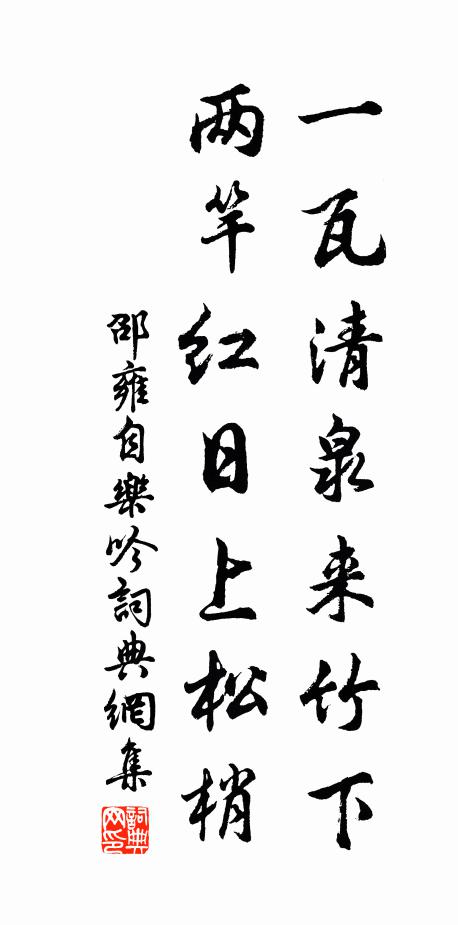 一瓦清泉来竹下
两竿红日上松梢
邵雍自樂吟詞典網集
詞典网印